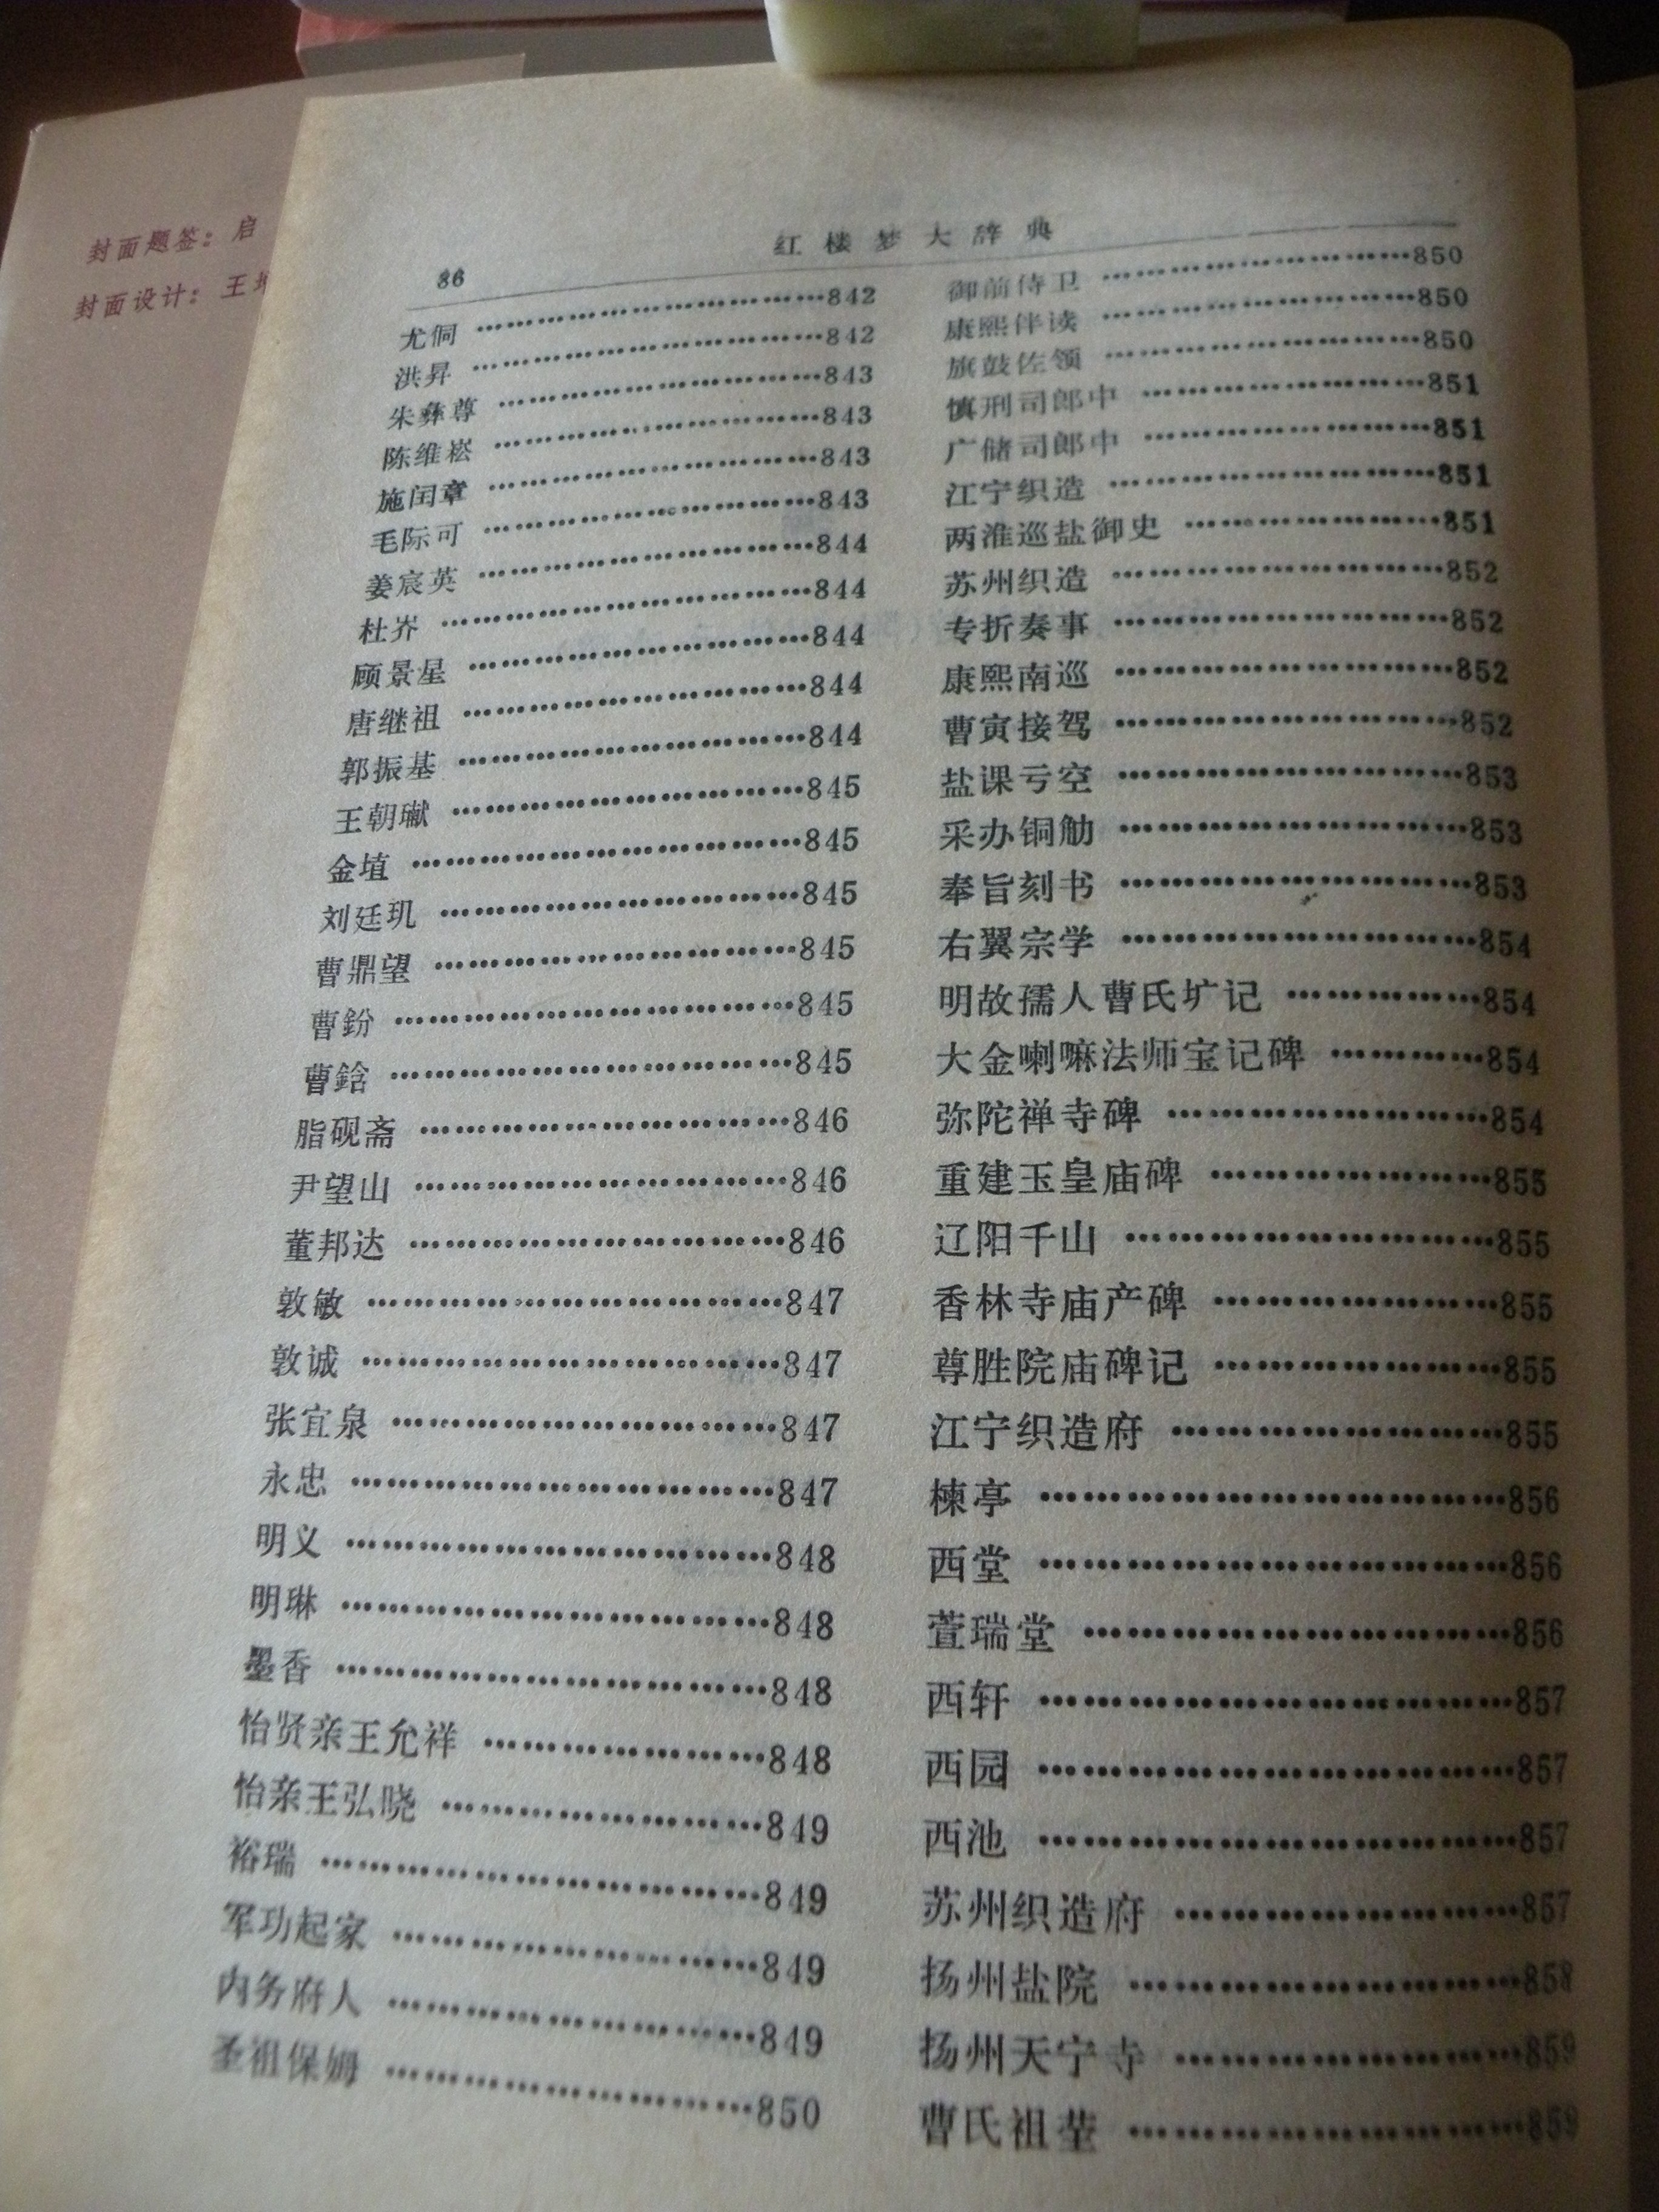 封面题签：启
封面设计：王
86
红楼梦大辞典
尤侗 ……………………………842
洪昇 ……………………………842
朱彝尊 ……………………………843
陈维崧 ……………………………843
施闰章 ……………………………843
毛际可 ……………………………843
姜宸英 ……………………………844
杜岕 ……………………………844
顾景星 ……………………………844
唐继祖 ……………………………844
郭振基 ……………………………844
王朝瓛 ……………………………845
金埴 ……………………………845
刘廷玑 ……………………………845
曹鼎望 ……………………………845
曹鈖 ……………………………845
曹鋡 ……………………………845
脂砚斋 ……………………………846
尹望山 ……………………………846
董邦达 ……………………………846
敦敏 ……………………………847
敦诚 ……………………………847
张宜泉 ……………………………847
永忠 ……………………………847
明义 ……………………………848
明琳 ……………………………848
墨香 ……………………………848
怡贤亲王允祥 …………………848
怡亲王弘晓 ……………………849
裕瑞 ……………………………849
军功起家 ………………………849
内务府人 ………………………849
圣祖保姆 ………………………850
御前侍卫 ………………………850
康熙伴读 ………………………850
旗鼓佐领 ………………………850
慎刑司郎中 ……………………851
广储司郎中 ……………………851
江宁织造 ………………………851
两淮巡盐御史 …………………851
苏州织造 ………………………852
专折奏事 ………………………852
康熙南巡 ………………………852
曹寅接驾 ………………………852
盐课亏空 ………………………853
采办铜觔 ………………………853
奉旨刻书 ………………………853
右翼宗学 ………………………854
明故孺人曹氏圹记 ……………854
大金喇嘛法师宝记碑 …………854
弥陀禅寺碑 ……………………854
重建玉皇庙碑 …………………855
辽阳千山 ………………………855
香林寺庙产碑 …………………855
尊胜院庙碑记 …………………855
江宁织造府 ……………………855
楝亭 ……………………………856
西堂 ……………………………856
萱瑞堂 …………………………856
西轩 ……………………………857
西园 ……………………………857
西池 ……………………………857
苏州织造府 ……………………857
扬州盐院 ………………………858
扬州天宁寺 ……………………859
曹氏祖茔 ………………………859